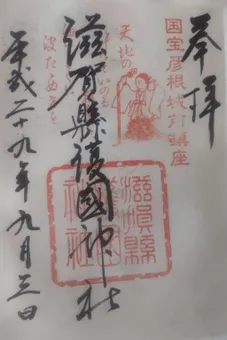 奉拝
国宝彦根城打鎮座
滋賀縣護國神社
滋賀縣護國神社
平成二十九年九月三日